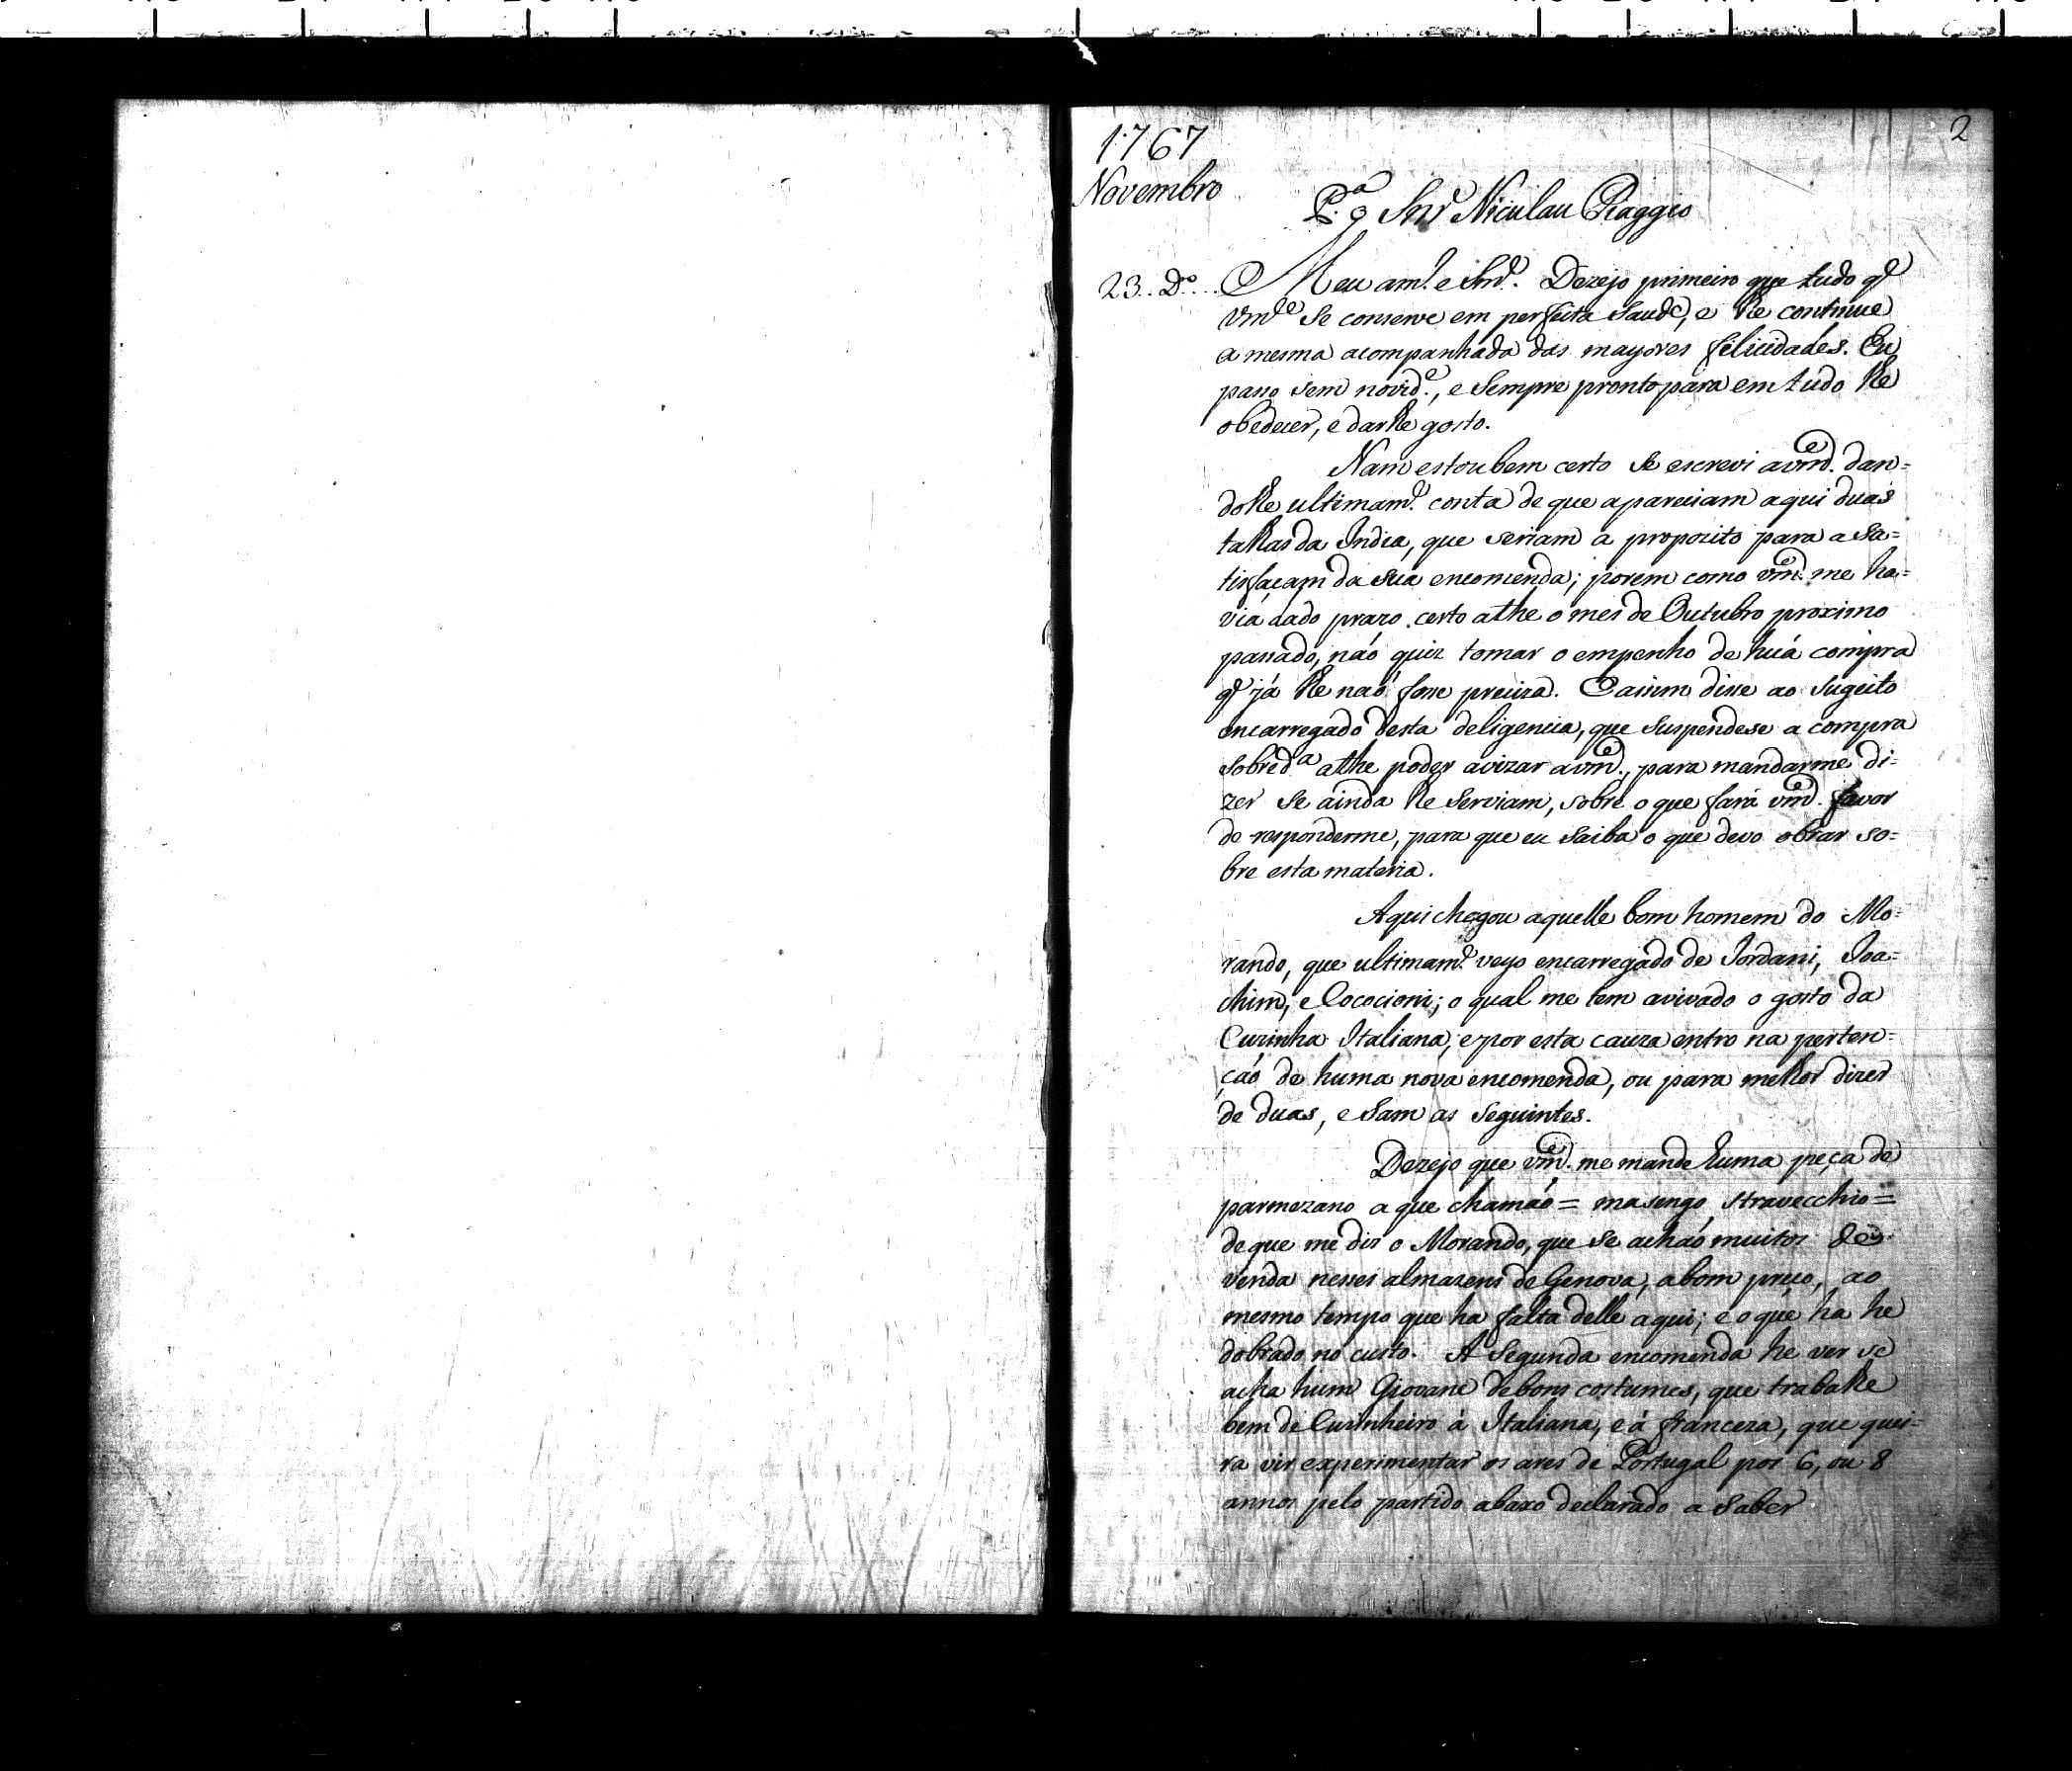 2
1767
Novembro
P.ª o Snr̃ Niculau Piaggio
23.. D.º... Meu am.º e Snr̃. Dezejo primeiro que tudo q̃
Vm.ce se conserve em perfeita saude, e lhe continue
a mesma acompanhada das mayores felicidades. Eu
passo sem novid.e, e sempre pronto para em tudo lhe
obedecer, e darlhe gosto.
Nam estou bem certo se escrevi a vm.ce dan=
dolhe ultimam.te conta de que apareciam aqui duas
talhas da India, que seriam a propozito para a sa=
tisfaçam da sua encomenda; porem como vm.ce me ha=
via dado prazo certo athe o mes de Outubro proximo
passado, não quiz tomar o empenho de huá compra
q̃ já lhe naõ fosse preciza. E assim disse ao sugeito
encarregado desta deligencia, que suspendese a compra
sobred.ª athe poder avizar a vm.ce, para mandarme di=
zer se ainda lhe serviam, sobre o que fará vm.ce favor
de responderme, para que eu saiba o que devo obrar so=
bre esta materia.
Aqui chegou aquelle bom homem do Mo=
rando, que ultimam.te veyo encarregado de Jordani, Joa=
chim, e Cococioni; o qual me tem avivado o gosto da
Cuzinha Italiana; e por esta cauza entro na perten=
ção de huma nova encomenda, ou para melhor dizer
de duas, e sam as seguintes.
Dezejo que vm.ce me mande huma peça de
parmezano a que chamão = masengo stravecchio =
de que me diz o Morando, que se achão muitos de
venda nesses almazens de Genova, a bom preco, ao
mesmo tempo que ha falta delle aqui; e o que ha he
dobrado no custo. A segunda encomenda he ver se
acha hum Giovane de bons costumes, que trabalhe
bem de Cuzinheiro á Italiana, e á franceza, que quei=
ra vir experimentar os ares de Portugal por 6, ou 8
annos pelo partido abaxo declarado a saber